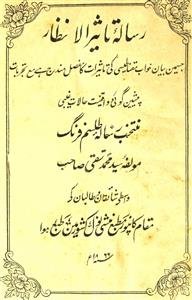 رسالۂ تاثیر الانظار
جسمیں بیان خواب مقناطیسی کی تاثیرات کا مفصل مندرج ہے مع تجربات
پیشین گوئی و واقفیت حالات غیبی
منتخب رسالہ طلسم فرنگ
مولفہ سید محمد تقی صاحب
واسطے شائقان و طالبان کے
مقام کانپور مطبع منشی نولکشور میں طبع ہوا